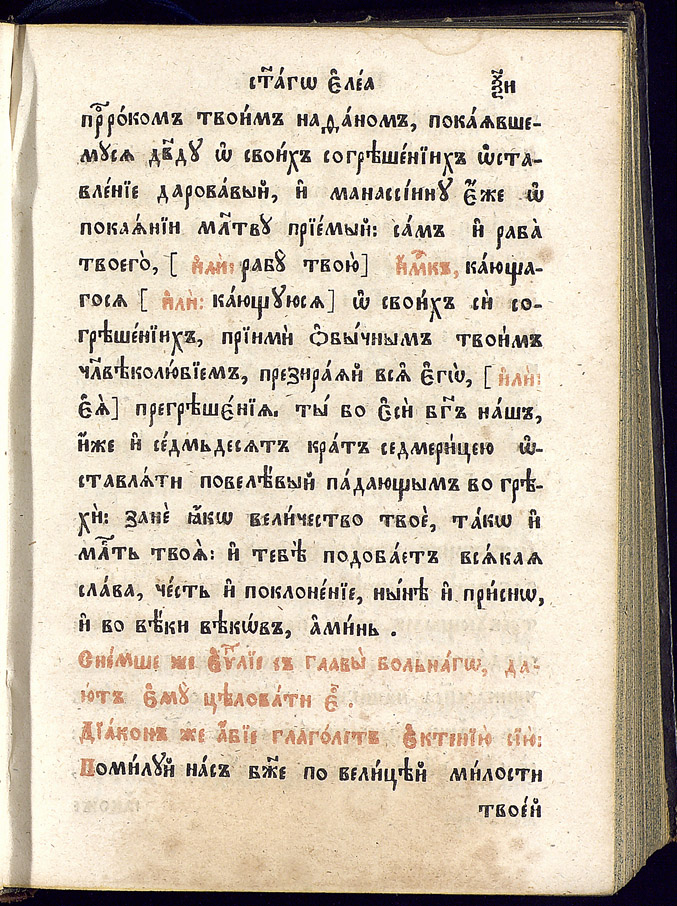 ст҃а́гѡ є҆ле́а ѯ҃и
прⷪ҇ро́комъ твои́мъ наѳа́номъ, пока́ѧвше-
мꙋсѧ дв҃дꙋ ѡ҆ свои́хъ согрѣше́нїихъ ѡ҆ста-
вле́нїе дарова́вый, и҆ манассі́инꙋ ю҆́же ѡ҆
покаѧ́нїи мл҃твꙋ прїе́мый: са́мъ и҆ раба̀
твоего̀, [ и҆лѝ: рабꙋ̀ твою̀] и҆́м҃къ, ка́юща-
госѧ [ и҆лѝ: ка́ющꙋюсѧ] ѡ҆ свои́хъ сѝ со-
грѣше́нїихъ, прїимѝ ѻ҆бы́чнымъ твои́мъ
чл҃вѣколю́бїемъ, презира́ѧй всѧ̑ є҆гѡ̀, [ и҆лѝ:
є҆ѧ̀] прегрѣшє́нїѧ. ты́ бо є҆сѝ бг҃ъ на́шъ,
и҆́же и҆ се́дмьдесѧтъ кра́тъ седмери́цею ѡ҆-
ставлѧ́ти повелѣ́вый па́дающымъ во грѣ-
хѝ: занѐ ꙗ҆́кѡ вели́чество твоѐ, та́кѡ и҆
мл҃ть твоѧ̀: и҆ тебѣ̀ подоба́етъ всѧ́каѧ
сла́ва, че́сть и҆ поклоне́нїе, ны́нѣ и҆ при́снѡ,
и҆ во вѣ́ки вѣкѡ́въ, а҆ми́нь.
Сне́мше же є҆ѵⷢ҇лїе съ главы̀ больна́гѡ, да-
ю́тъ є҆мꙋ̀ цѣлова́ти є҆̀.
Дїа́конъ же а҆́бїе глаго́летъ є҆ктенїю̀ сїю̀:
Поми́лꙋй на́съ бж҃е по вели́цѣй ми́лости
твое́й